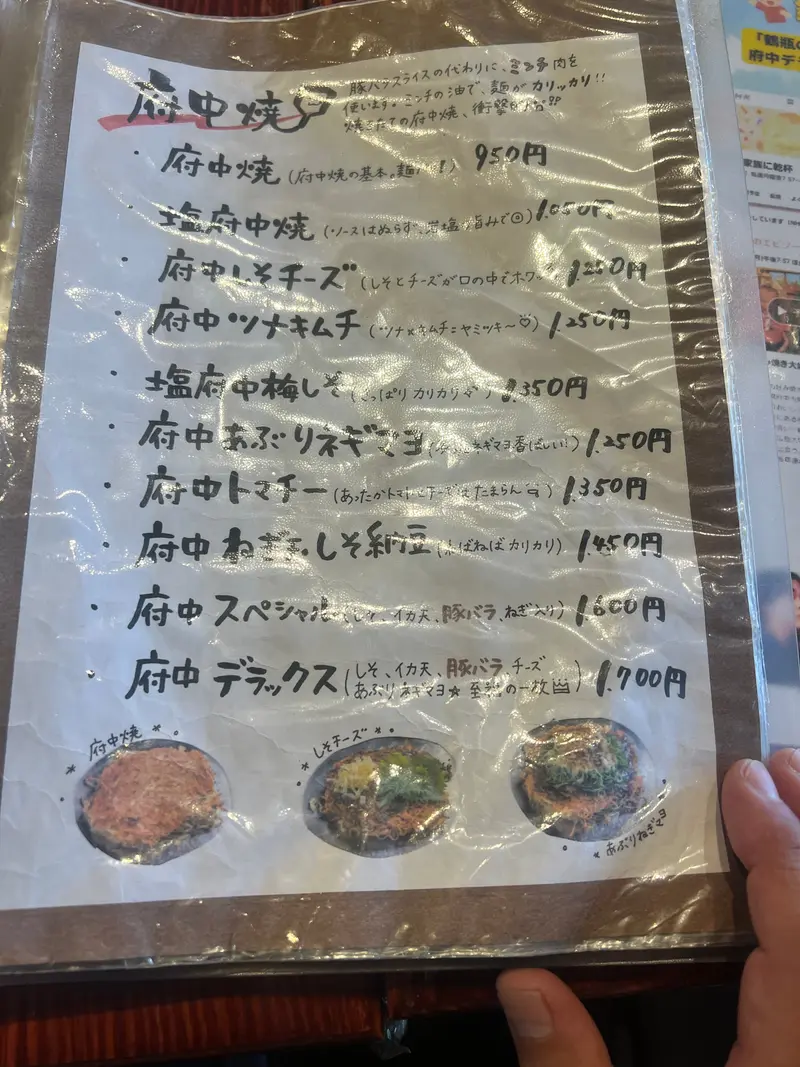 府中焼
豚バラスライスの代わりに、ミンチ肉を
使います。ミンチの油で、麺がカリッカリ!!
焼きたての府中焼、衝撃
・府中焼 (府中焼の基本。麺 !) 950円
・塩府中焼 (ソースはぬらず、岩塩の旨みで◎) 1.050円
・府中しそチーズ (しそとチーズが口の中でホワ 1.250円
・府中ツナキムチ (ツナ×キムチ=ヤミツキ〜♡) 1.250円
・塩府中梅しそ (さっぱりカリカリ 1.350円
・府中あぶりネギマヨ ( ネギマヨ香ばしい!) 1.250円
・府中トマチー (あったかトマトとチーズがたまらん 1.350円
・府中ねぎしそ納豆 (ねばねばカリカリ) 1.450円
・府中スペシャル (しそ、イカ天、豚バラ、ねぎ入り) 1.600円
・府中デラックス (しそ、イカ天、豚バラ、チーズ
あぶりネギマヨ★ 至福の一枚) 1.700円
府中焼
しそチーズ
あぶりねぎマヨ
「鶴瓶の
府中デ
家族に乾杯